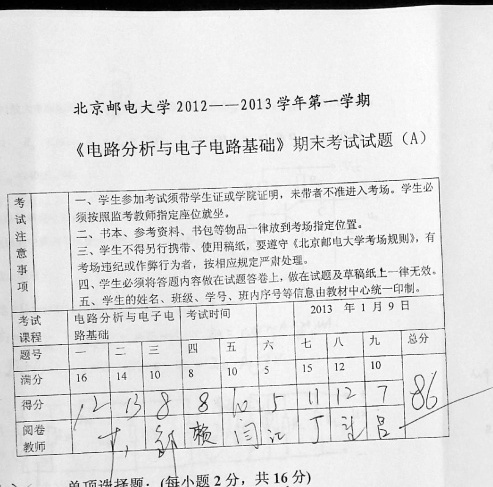 北京邮电大学 2012——2013 学年第一学期
《电路分析与电子电路基础》期末考试试题（A）
考试注意事项
一、学生参加考试须带学生证或学院证明，未带者不准进入考场。学生必
须按照监考教师指定座位就坐。
二、书本、参考资料、书包等物品一律放到考场指定位置。
三、学生不得另行携带、使用稿纸，要遵守《北京邮电大学考场规则》，有
考场违纪或作弊行为者，按相应规定严肃处理。
四、学生必须将答题内容做在试题答卷上，做在试题及草稿纸上一律无效。
五、学生的姓名、班级、学号、班内序号等信息由教材中心统一印制。
考试课程 电路分析与电子电路基础 考试时间 2013 年 1 月 9 日
题号 一 二 三 四 五 六 七 八 九 总分
满分 16 14 10 8 10 5 15 12 10
得分 12 13 8 8 10 5 11 12 7 86
阅卷教师 赖 闫 江 丁 吕
单项选择题：(每小题 2 分，共 16 分)